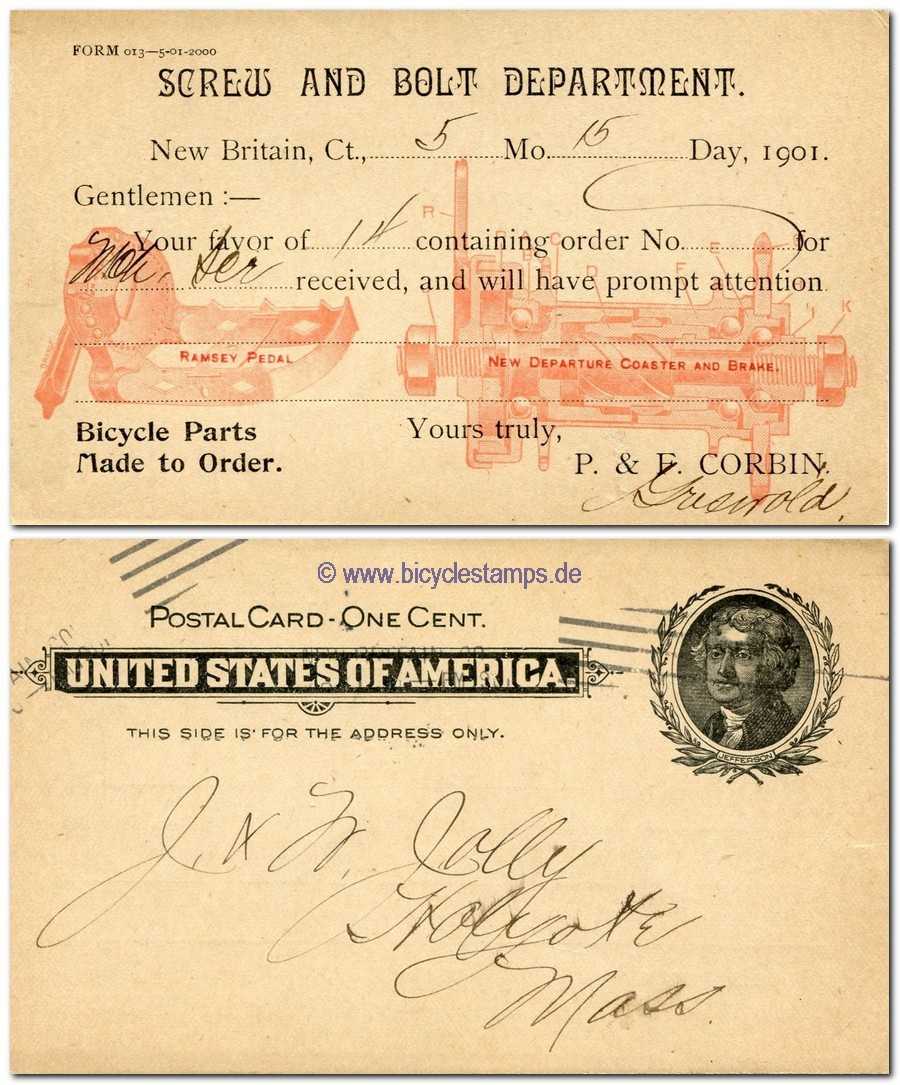 FORM 013—5-01-2000
SCREW AND BOLT DEPARTMENT.
New Britain, Ct., 5 Mo. 15 Day, 1901.
Gentlemen :—
Your favor of 14 containing order No. for
received, and will have prompt attention
RAMSEY PEDAL
NEW DEPARTURE COASTER AND BRAKE.
Bicycle Parts
Made to Order.
Yours truly,
P. & F. CORBIN.
Griswold.
© www.bicyclestamps.de
POSTAL CARD - ONE CENT.
UNITED STATES OF AMERICA.
THIS SIDE IS FOR THE ADDRESS ONLY.
JEFFERSON
J. & W. Jolly
Holyoke
Mass.